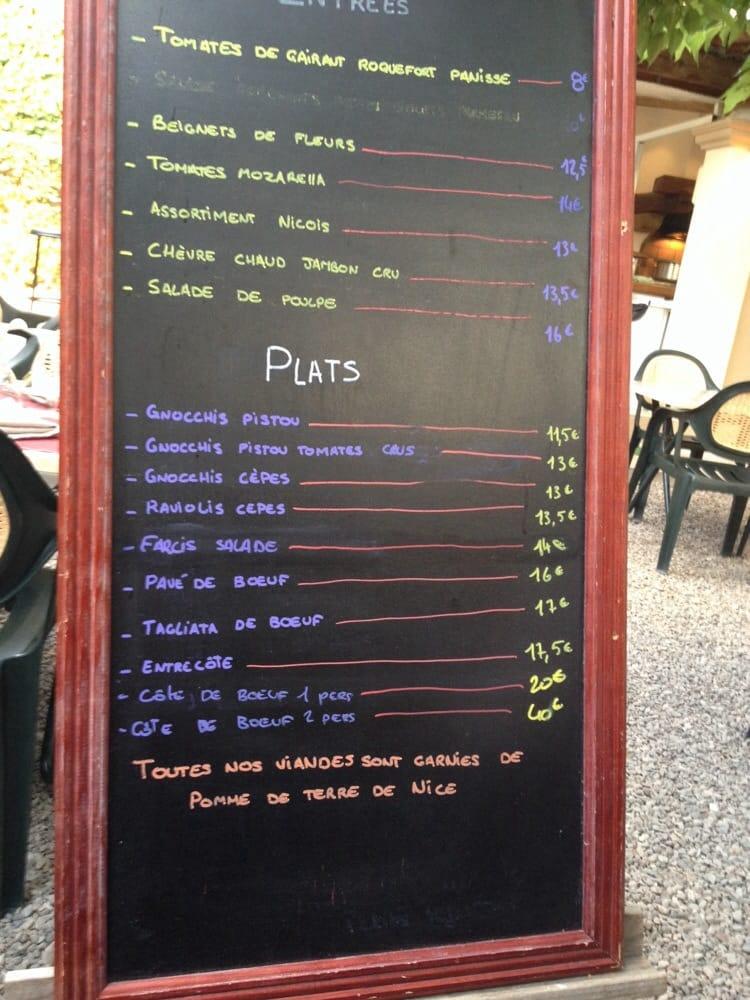 ENTRÉES
- TOMATES DE GAIRANT ROQUEFORT PANISSE 8€
- BEIGNETS DE FLEURS 12,5€
- TOMATES MOZARELLA 14€
- ASSORTIMENT NICOIS 13€
- CHÈVRE CHAUD JAMBON CRU 13,5€
- SALADE DE POULPE 16€
PLATS
- GNOCCHIS PISTOU 11,5€
- GNOCCHIS PISTOU TOMATES CRUS 13€
- GNOCCHIS CÈPES 13€
- RAVIOLIS CEPES 13,5€
- FARCIS SALADE 14€
- PAVÉ DE BOEUF 16€
- TAGLIATA DE BOEUF 17€
- ENTRECÔTE 17,5€
- CÔTE DE BOEUF 1 PERS 20€
- CÔTE DE BOEUF 2 PERS 40€
TOUTES NOS VIANDES SONT GARNIES DE
POMME DE TERRE DE NICE